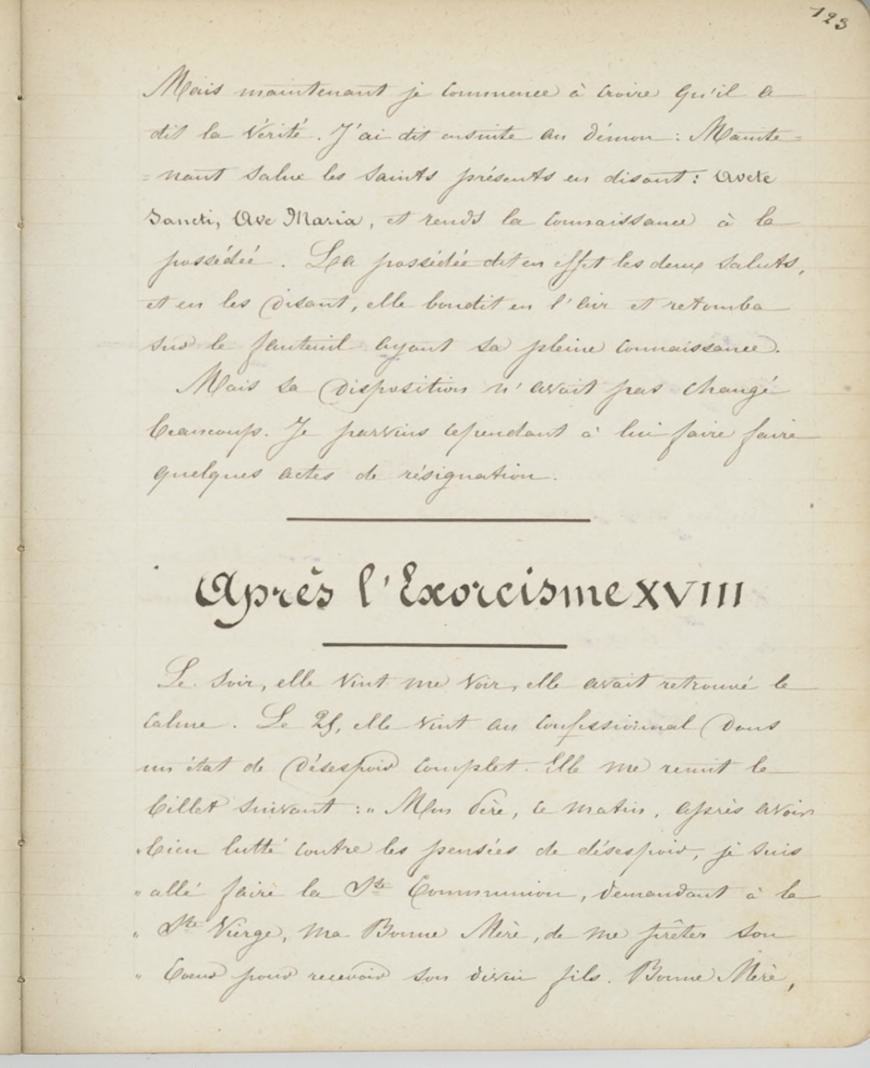 123
Mais maintenant je commence à croire qu'il a
dit la vérité. J'ai dit ensuite au démon : Mainte=
=nant salue les saints présents en disant : Avete
Sancti, Ave Maria, et rends la connaissance à la
possédée. La possédée dit en effet les deux saluts,
et en les disant, elle bondit en l'air et retomba
sur le fauteuil ayant sa pleine connaissance.
Mais sa disposition n'avait pas changé
beaucoup. Je parvins cependant à lui faire faire
quelques actes de résignation.
Après l'Exorcisme XVIII
Le soir, elle vint me voir, elle avait retrouvé le
calme. Le 25, elle vint au confessionnal dans
un état de désespoir complet. Elle me remit le
billet suivant : " Mon Père, ce matin, après avoir
" bien lutté contre les pensées de désespoir, je suis
" allé faire la Ste Communion, demandant à la
" Ste Vierge, ma Bonne Mère, de me prêter son
" Cœur pour recevoir son divin fils. Bonne Mère,